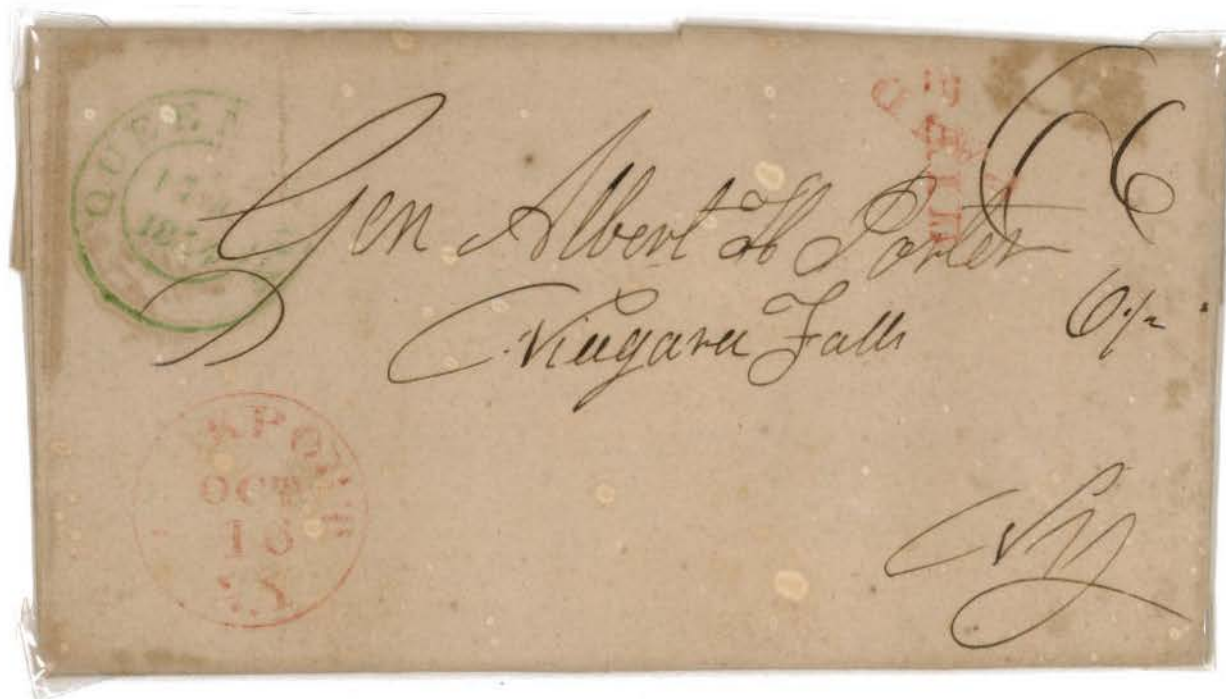 QUEE
PAID
PAID
6
Gen Albert H Porter
Niagara Falls
6/-
KPORT
OCT
16
N.Y
NY